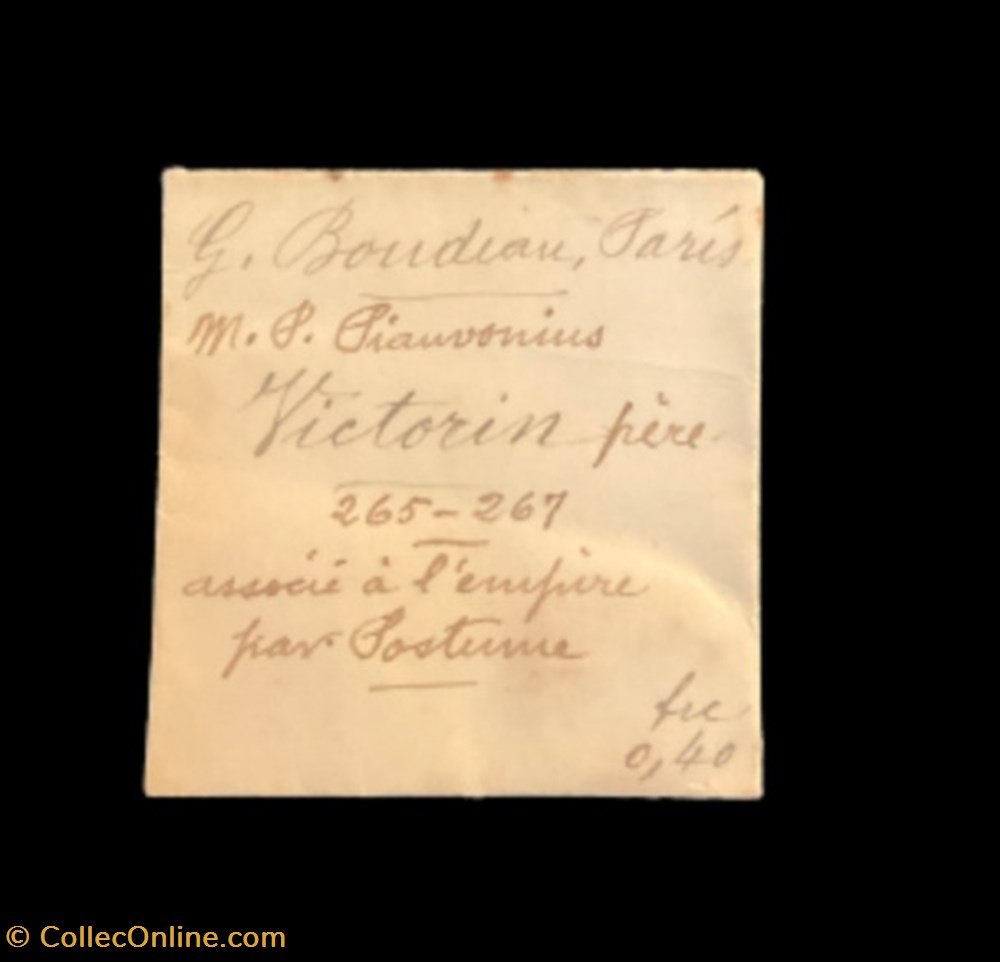 G. Boudeau, Paris
M. P. Piauvonius
Victorin père
265-267
associé à l'empire
par Postume
frc
0,40
© CollecOnline.com